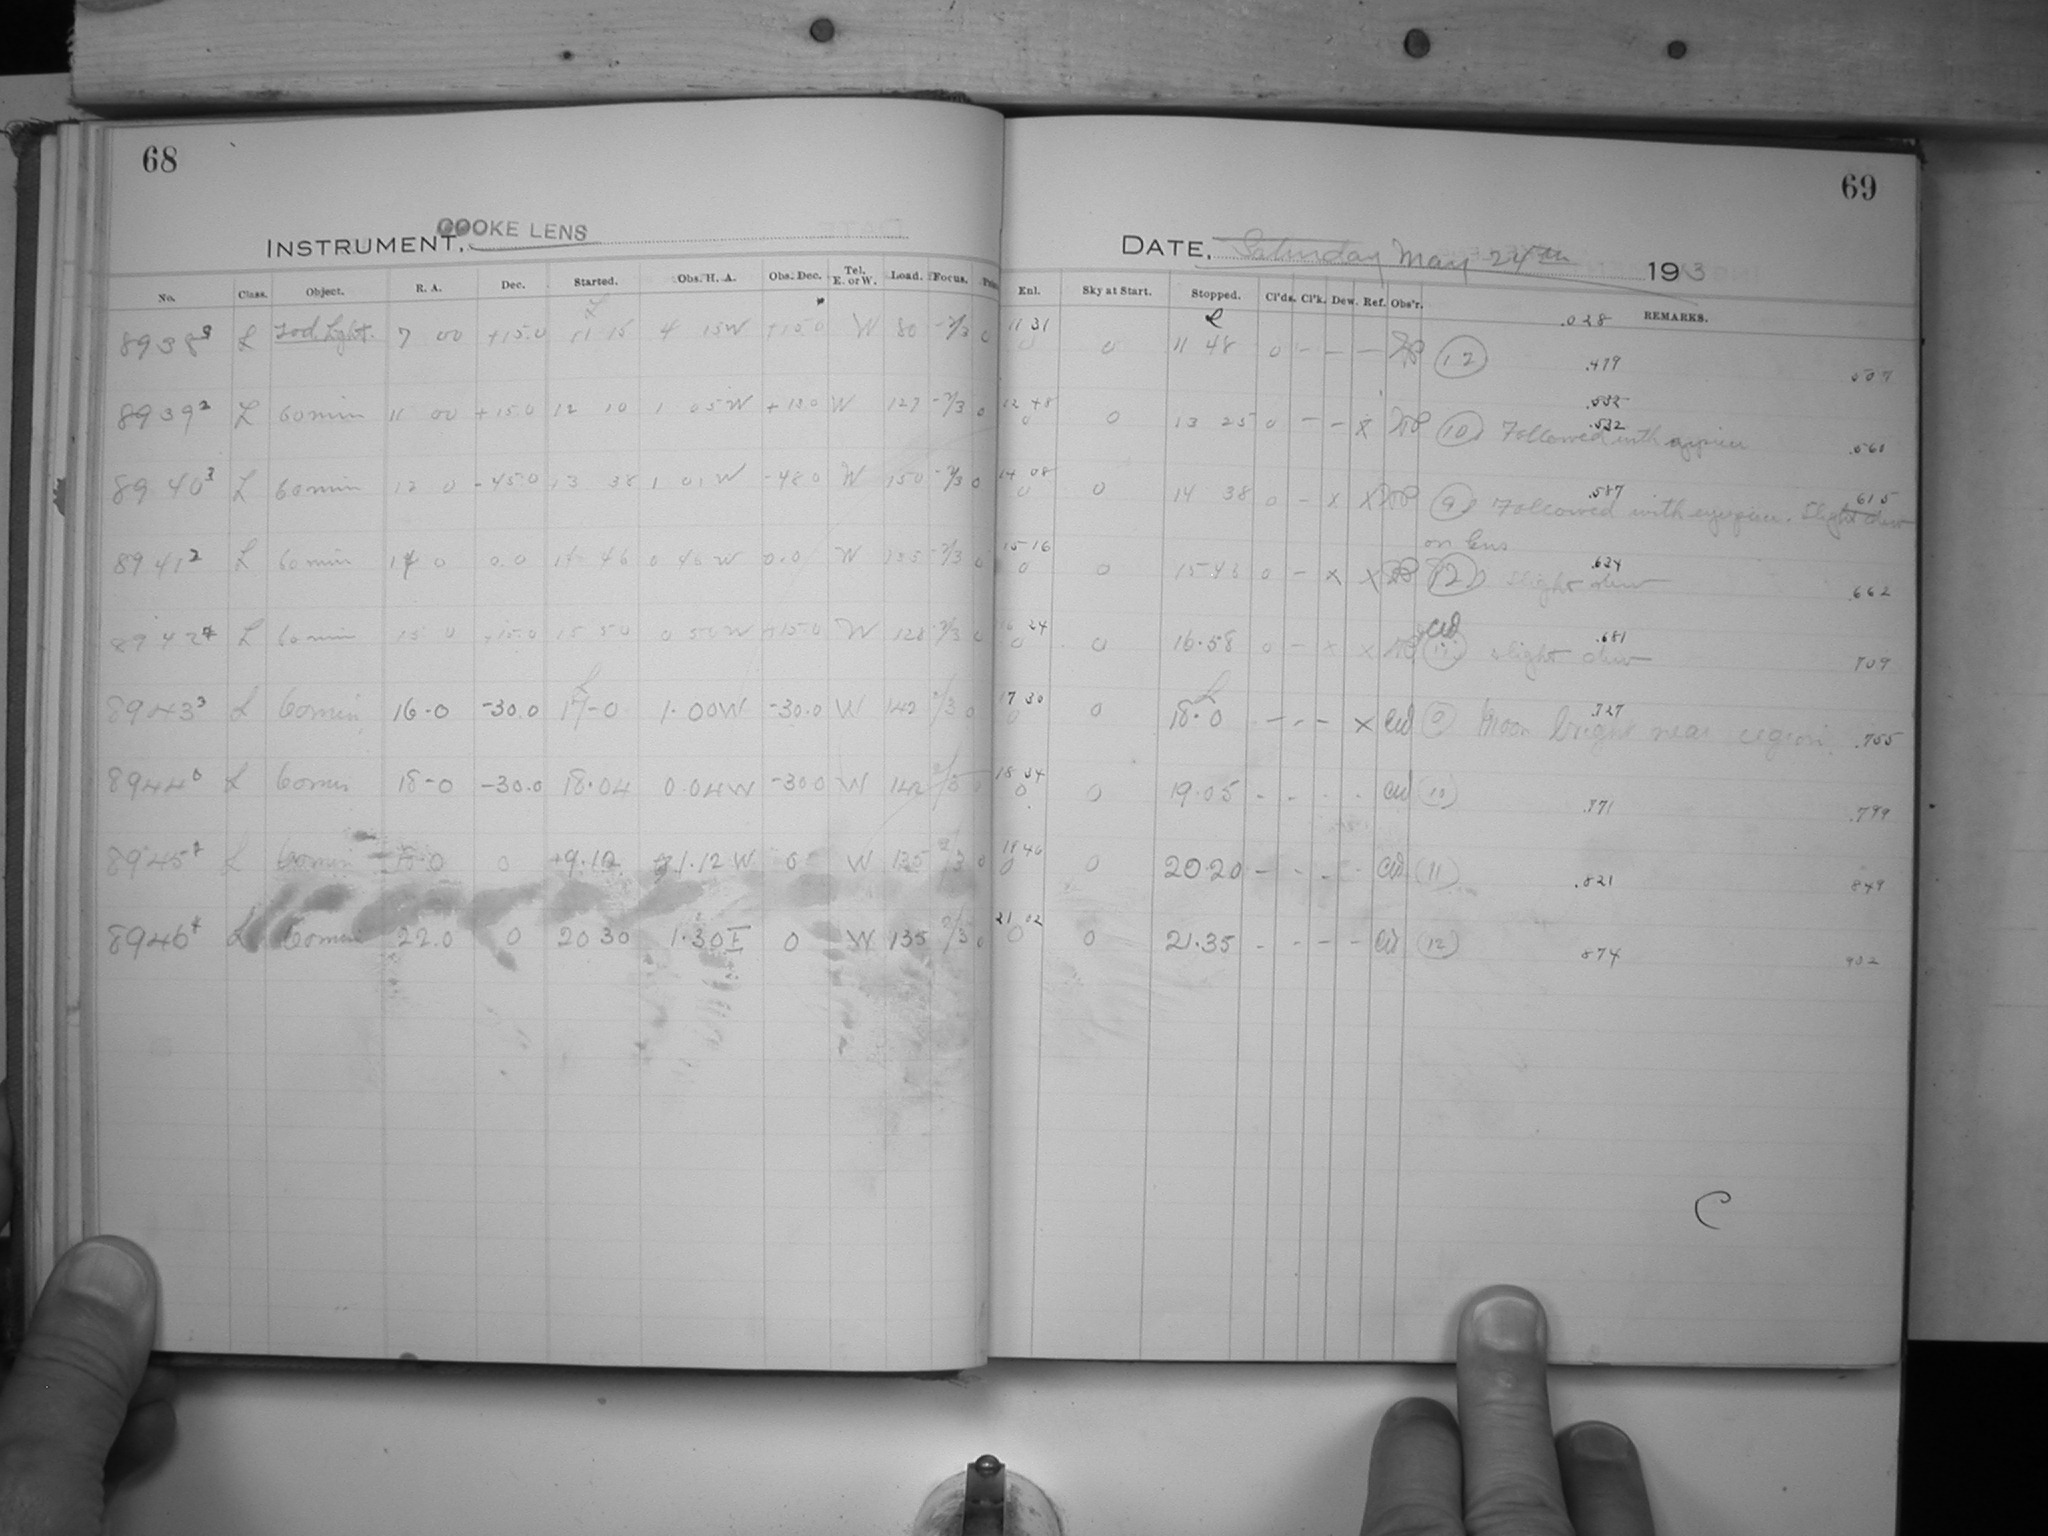 68
INSTRUMENT, COOKE LENS
No. Class. Object. R. A. Dec. Started. Obs. H. A. Obs. Dec. Tel. E. or W. Load. Focus.
8938 L Zod. Light. 7 00 +15.0 11 15 4 15W +15.0 W 80 -2/3 0
8939² L 60 min 11 00 +15.0 12 10 1 05W W 127 -2/3 0
8940³ L 60 min 12 0 -45.0 13 38 1 01 W -48 0 W 150 -2/3 0
8941² L 60 min 14 0 0.0 14 46 0 46 W 0.0 W 135 -2/3 0
8942 L 60 min 15 0 +15.0 15 50 0 50 W +15.0 W 128 -2/3 0
8943³ L 60 min 16-0 -30.0 17-0 1.00W -30.0 W 142 2/3 0
8944⁰ L 60 min 18-0 -30.0 18.04 0.04W -30 0 W 142 2/3
8945 L 60 min 18-0 0 19.12 1.12 W 0 W 135 2/3 0
8946 L 60 min 22.0 0 20 30 1.30E 0 W 135 2/3 0
69
DATE, Saturday May 24th 1913
Enl. Sky at Start. Stopped. Cl'ds. Cl'k. Dew. Ref. Obs'r. REMARKS.
.028
11 31 0 0 11 48 0 - - - (12) .479 507
.532
12 48 0 0 13 25 0 - - x (10) Followed with eyepiece .532 .560
14 08 0 0 14 38 0 - x x (9) Followed with eyepiece. Slight dew .587 615
on lens
15 16 0 0 15 46 0 - x x (12) slight dew .634 .662
16 24 0 0 16.58 0 - x x (11) slight dew .681 709
17 30 0 0 18.0 - - - x (9) Moon bright near region. .727 .755
18 34 0 0 19.05 - - - - (10) .771 .799
19 46 0 0 20.20 - - - - (11) .821 849
21 02 0 0 21.35 - - - - (12) 874 902
C